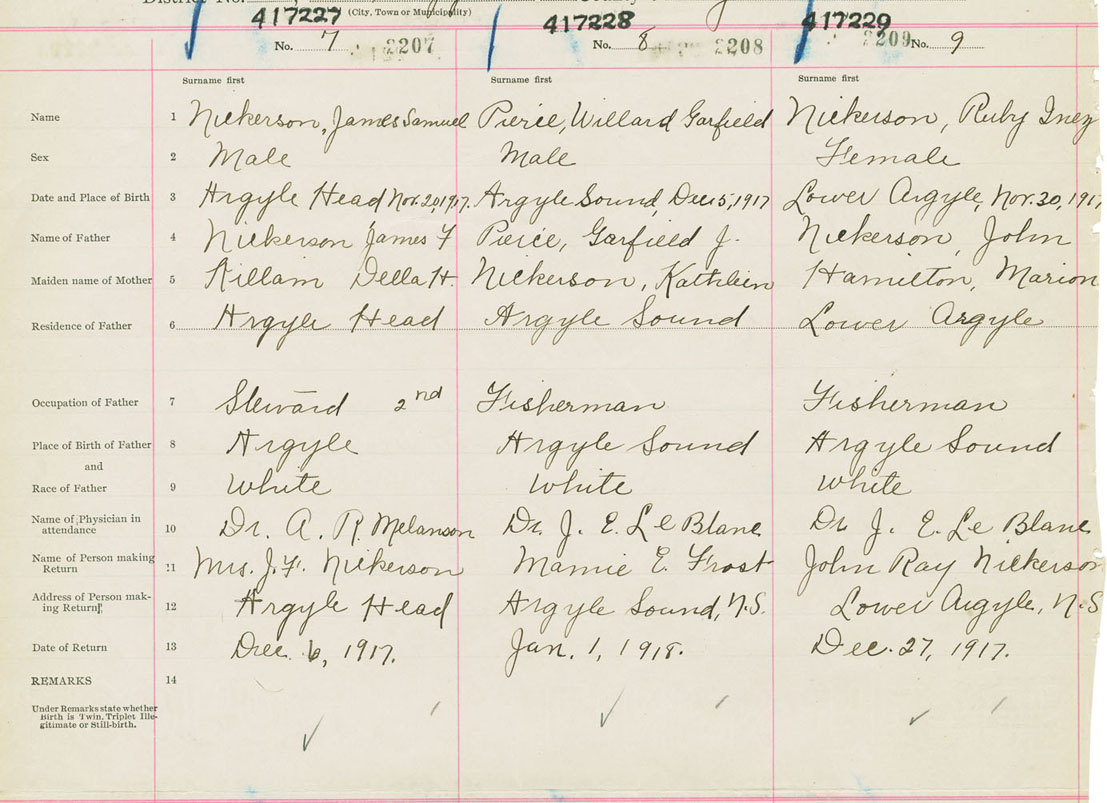 District No.
(City, Town or Municipality)
417227 417228 417229
No. 7 2207 No. 8 2208 2209 No. 9
Surname first Surname first Surname first
Name 1 Nickerson, James Samuel Pierce, Willard Garfield Nickerson, Ruby Inez
Sex 2 Male Male Female
Date and Place of Birth 3 Argyle Head Nov. 20, 1917. Argyle Sound, Dec 5, 1917 Lower Argyle, Nov. 30, 1917
Name of Father 4 Nickerson James F Pierce, Garfield J. Nickerson, John
Maiden name of Mother 5 Killam Della H. Nickerson, Kathleen Hamilton, Marion
Residence of Father 6 Argyle Head Argyle Sound Lower Argyle
Occupation of Father 7 Steward 2nd Fisherman Fisherman
Place of Birth of Father 8 Argyle Argyle Sound Argyle Sound
and
Race of Father 9 White White White
Name of Physician in
attendance 10 Dr. A. R. Melanson Dr. J. E. Le Blanc Dr J. E. Le Blanc
Name of Person making
Return 11 Mrs. J. F. Nickerson Mamie E. Frost John Ray Nickerson
Address of Person mak-
ing Return 12 Argyle Head Argyle Sound, N.S. Lower Argyle, N.S
Date of Return 13 Dec. 6, 1917. Jan. 1, 1918. Dec. 27, 1917.
REMARKS 14
Under Remarks state whether
Birth is Twin, Triplet Ille-
gitimate or Still-birth.